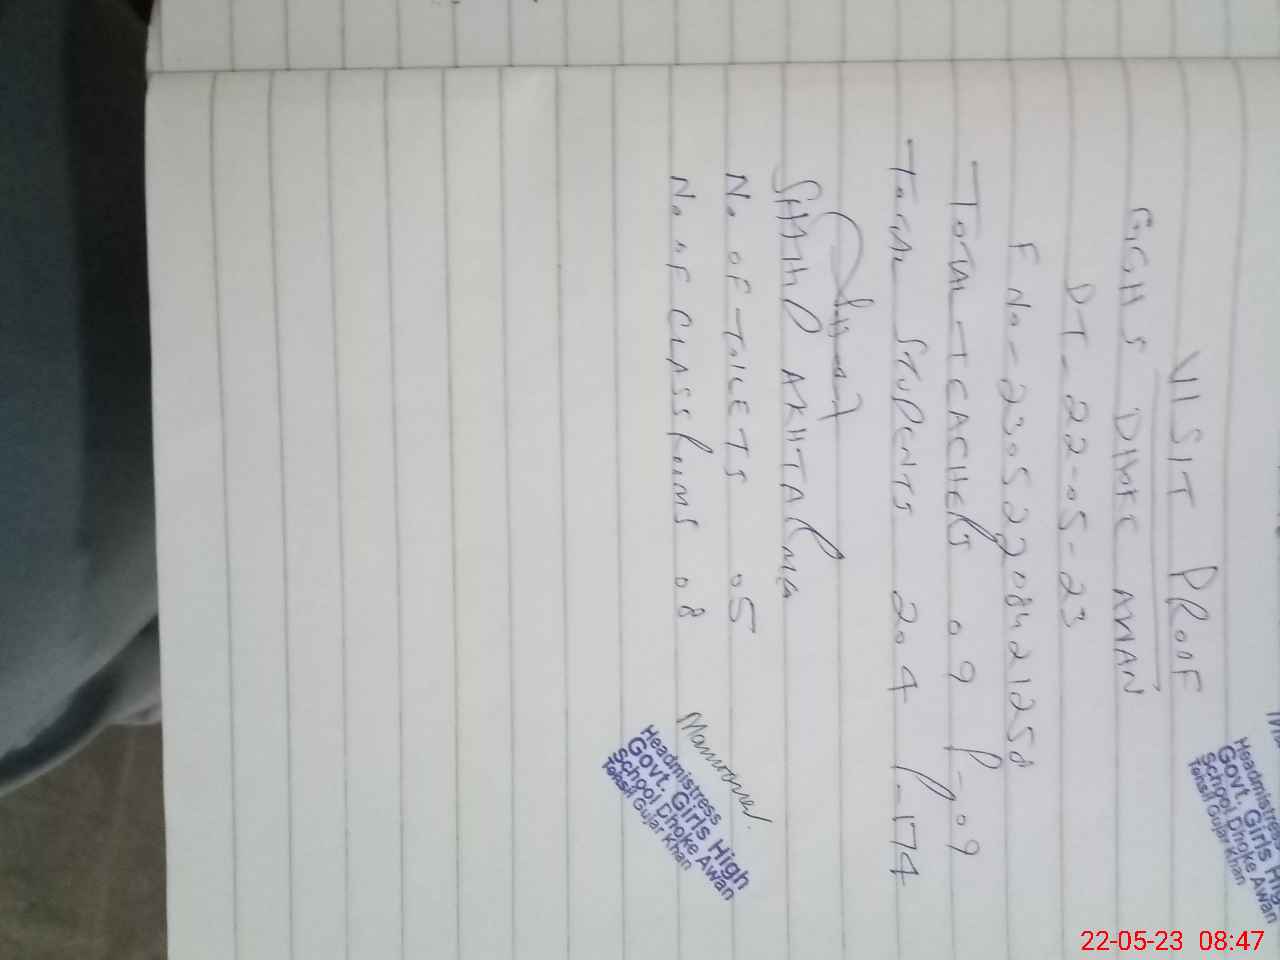 VISIT PROOF
GGHS DHOKE AWAN
DT- 22-05-23
F No- 23052208421258
TOTAL TEACHERS 09 P-09
TOTAL STUDENTS 204 P-174
SHAHID AKHTAR
No OF TOILETS 05
No OF CLASS ROOMS 08
Headmistress
Govt. Girls High
School Dhoke Awan
Tehsil Gujar Khan
Headmistress
Govt. Girls Hig
School Dhoke Awa
Tehsil Gujar Khan
22-05-23 08:47